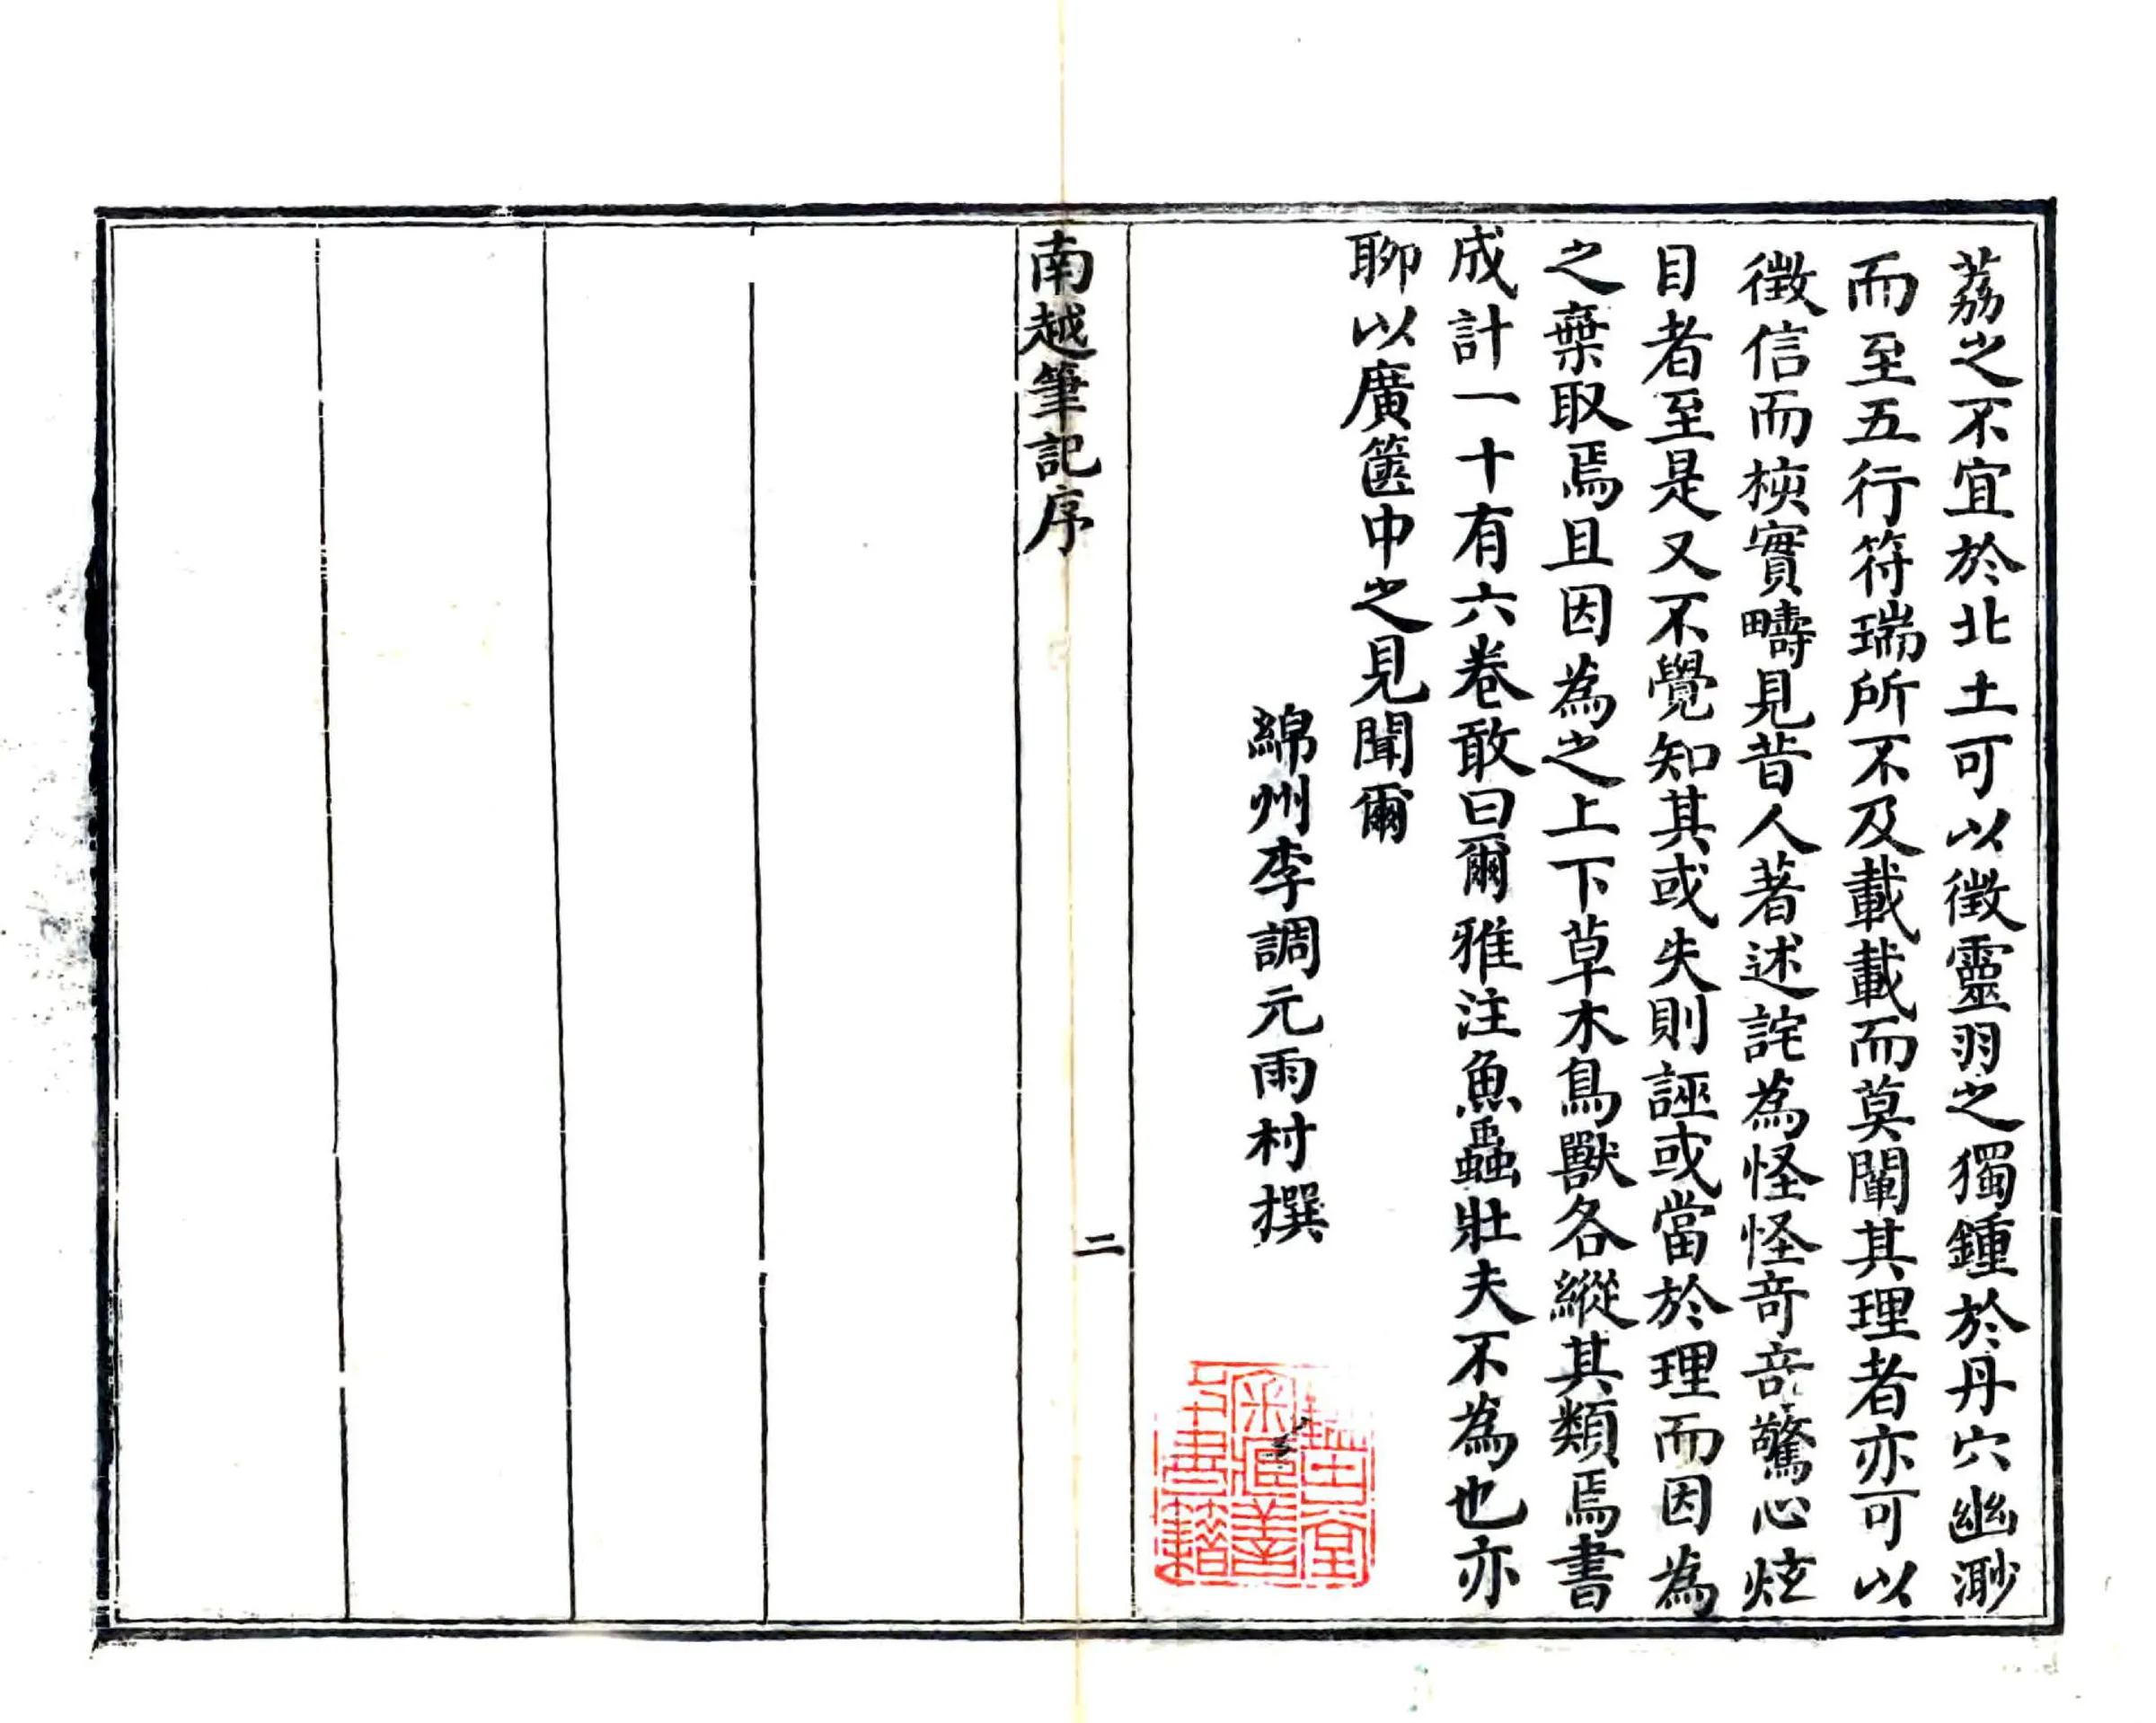 荔之不宜於北土可以徵靈羽之獨鍾於丹穴幽渺
而至五行符瑞所不及載載而莫闡其理者亦可以
徵信而核實疇見昔人著述詫為怪怪奇奇驚心炫
目者至是又不覺知其或失則誣或當於理而因為
之棄取焉且因為之上下草木鳥獸各縱其類焉書
成計一十有六卷敢曰爾雅注魚蟲壯夫不為也亦
聊以廣篋中之見聞爾
綿州李調元雨村撰
南越筆記序
二